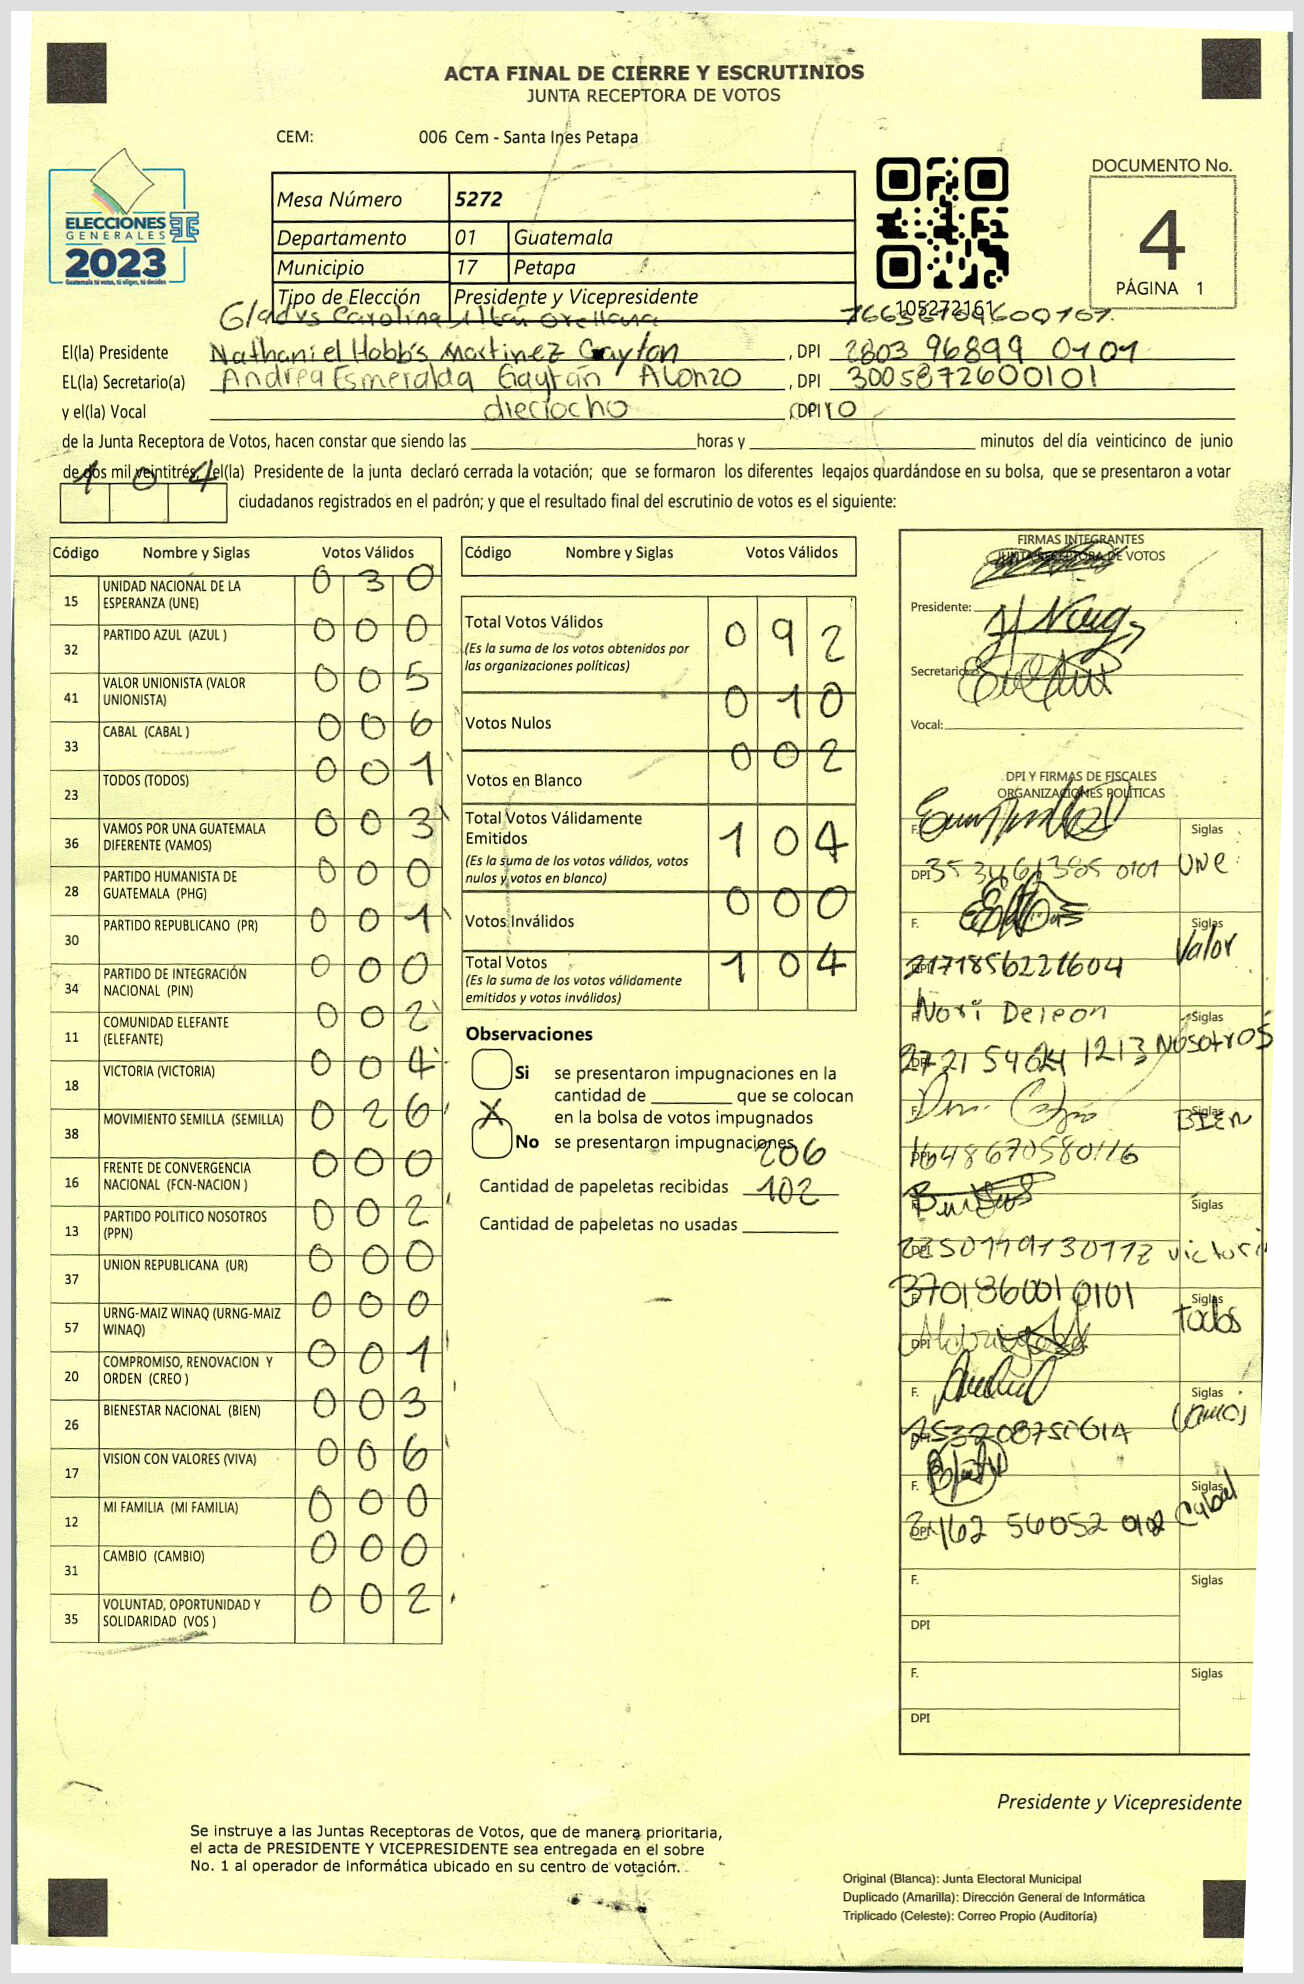 ACTA FINAL DE CIERRE Y ESCRUTINIOS
JUNTA RECEPTORA DE VOTOS
CEM: 006 Cem - Santa Ines Petapa
ELECCIONES
GENERALES
2023
Guatemala tú votas, tú eliges, tú decides
Mesa Número 5272
Departamento 01 Guatemala
Municipio 17 Petapa
Tipo de Elección Presidente y Vicepresidente
105272161
DOCUMENTO No.
4
PÁGINA 1
Gladys Carolina Orellana
El(la) Presidente Nathaniel Hobbs Martinez Gayton , DPI 2803 96899 0101
EL(la) Secretario(a) Andrea Esmeralda Gaytán Alonzo , DPI 3005872600101
y el(la) Vocal dieciocho , DPI 10
de la Junta Receptora de Votos, hacen constar que siendo las horas y minutos del día veinticinco de junio
de dos mil veintitrés, el(la) Presidente de la junta declaró cerrada la votación; que se formaron los diferentes legajos guardándose en su bolsa, que se presentaron a votar
104 ciudadanos registrados en el padrón; y que el resultado final del escrutinio de votos es el siguiente:
Código Nombre y Siglas Votos Válidos
15 UNIDAD NACIONAL DE LA ESPERANZA (UNE) 0 3 0
32 PARTIDO AZUL (AZUL ) 0 0 0
41 VALOR UNIONISTA (VALOR UNIONISTA) 0 0 5
33 CABAL (CABAL ) 0 0 6
23 TODOS (TODOS) 0 0 1
36 VAMOS POR UNA GUATEMALA DIFERENTE (VAMOS) 0 0 3
28 PARTIDO HUMANISTA DE GUATEMALA (PHG) 0 0 0
30 PARTIDO REPUBLICANO (PR) 0 0 1
34 PARTIDO DE INTEGRACIÓN NACIONAL (PIN) 0 0 0
11 COMUNIDAD ELEFANTE (ELEFANTE) 0 0 2
18 VICTORIA (VICTORIA) 0 0 4
38 MOVIMIENTO SEMILLA (SEMILLA) 0 2 6
16 FRENTE DE CONVERGENCIA NACIONAL (FCN-NACION ) 0 0 0
13 PARTIDO POLITICO NOSOTROS (PPN) 0 0 2
37 UNION REPUBLICANA (UR) 0 0 0
57 URNG-MAIZ WINAQ (URNG-MAIZ WINAQ) 0 0 0
20 COMPROMISO, RENOVACION Y ORDEN (CREO ) 0 0 1
26 BIENESTAR NACIONAL (BIEN) 0 0 3
17 VISION CON VALORES (VIVA) 0 0 6
12 MI FAMILIA (MI FAMILIA) 0 0 0
31 CAMBIO (CAMBIO) 0 0 0
35 VOLUNTAD, OPORTUNIDAD Y SOLIDARIDAD (VOS ) 0 0 2
Código Nombre y Siglas Votos Válidos
Total Votos Válidos 0 9 2
(Es la suma de los votos obtenidos por
las organizaciones políticas)
Votos Nulos 0 1 0
Votos en Blanco 0 0 2
Total Votos Válidamente
Emitidos 1 0 4
(Es la suma de los votos válidos, votos
nulos y votos en blanco)
Votos Inválidos 0 0 0
Total Votos 1 0 4
(Es la suma de los votos válidamente
emitidos y votos inválidos)
Observaciones
Si se presentaron impugnaciones en la
cantidad de que se colocan
en la bolsa de votos impugnados
X
No se presentaron impugnaciones
206
Cantidad de papeletas recibidas 102
Cantidad de papeletas no usadas
FIRMAS INTEGRANTES
JUNTA RECEPTORA DE VOTOS
Presidente:
Secretario:
Vocal:
DPI Y FIRMAS DE FISCALES
ORGANIZACIONES POLÍTICAS
F. Siglas
DPI UNE
F. Siglas
DPI 2171856221604 Valor
F. Nori Deleon Siglas
DPI Nosotros
F. Siglas
DPI 1648670580116 BIEN
F. Siglas
DPI victori
3701860010101
F. Siglas
DPI Todos
F. Siglas
DPI
F. Siglas
DPI Cabal
F. Siglas
DPI
F. Siglas
DPI
Presidente y Vicepresidente
Se instruye a las Juntas Receptoras de Votos, que de manera prioritaria,
el acta de PRESIDENTE Y VICEPRESIDENTE sea entregada en el sobre
No. 1 al operador de informática ubicado en su centro de votación.
Original (Blanca): Junta Electoral Municipal
Duplicado (Amarilla): Dirección General de Informática
Triplicado (Celeste): Correo Propio (Auditoría)